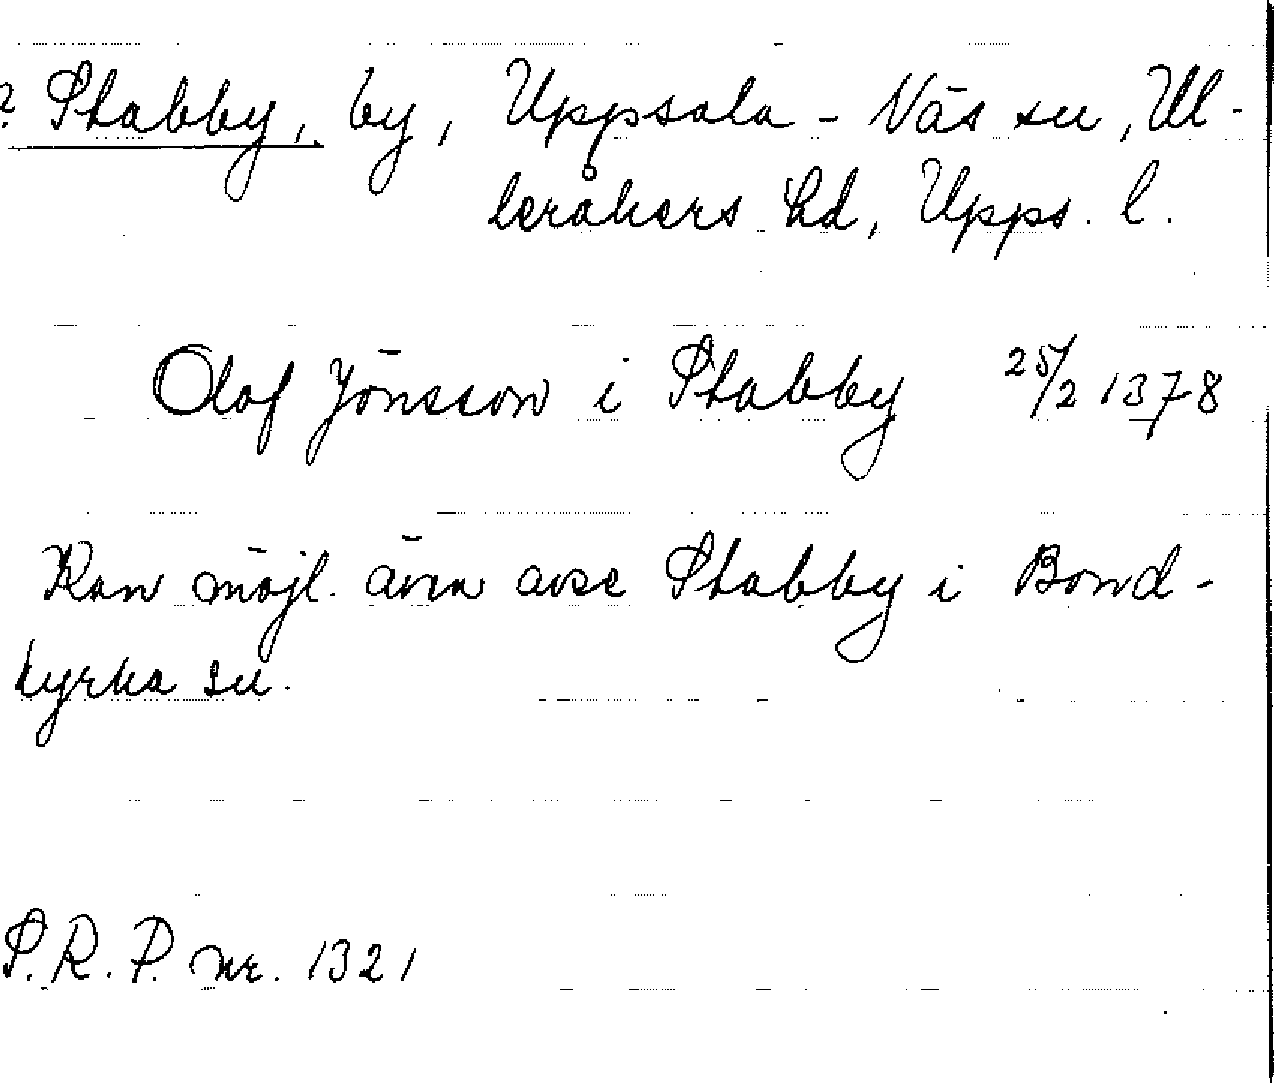 ? Stabby, by, Uppsala - Näs sn, Ul-
leråkers hd, Upps. l.
Olof Jönsson i Stabby 25/2 1378
Kan möjl. även avse Stabby i Bond-
kyrka sn.
S.R.P. nr. 1321